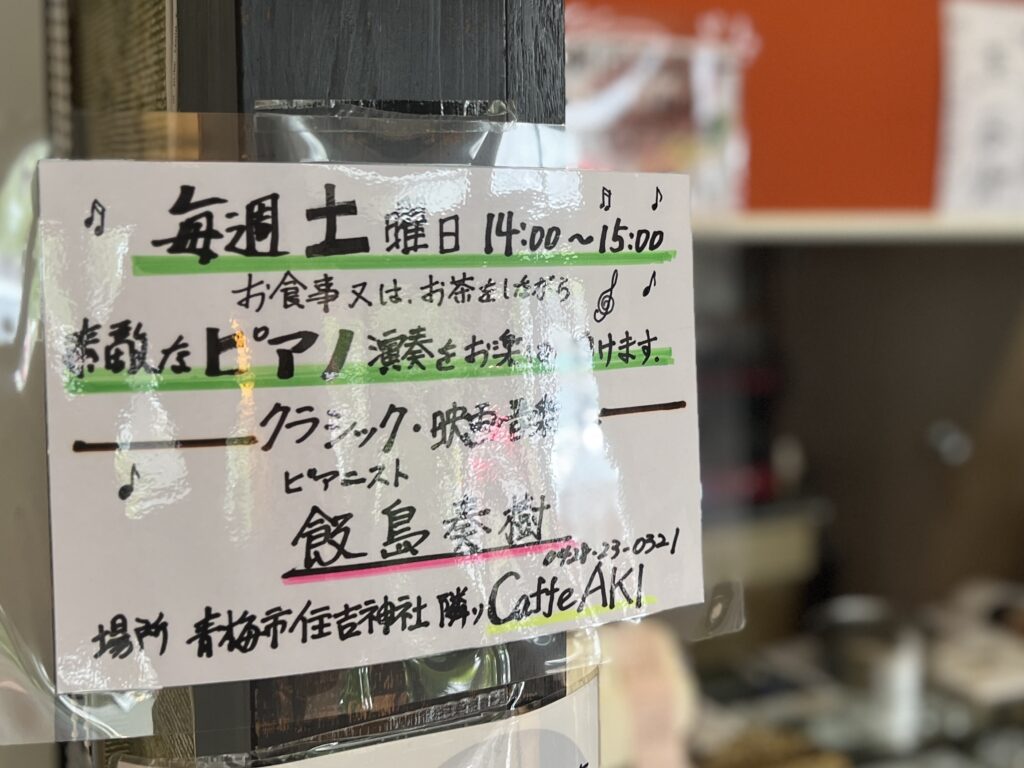 毎週土曜日 14:00～15:00
お食事又は、お茶をしながら
素敵なピアノ演奏をお楽けます.
クラシック・映画音楽
ピアニスト
飯島奏樹
0428-23-0321
場所 青梅市住吉神社 隣り Caffe AKI